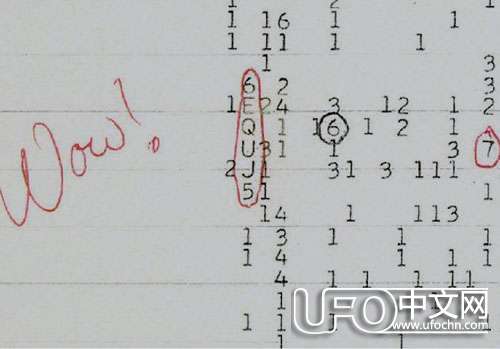 1 16 1
1 11 1 1
1 3
6 2 3
1 E 2 4 3 12 1 2
Q 1 1 6 1 2 1
Wow!
U 3 1 1 3 7
2 J 1 31 3 111
5 1 1
14 1 113
1 3 1 1 1
1 4 1 1 1
4 1 1 1 11
UFO中文网
www.ufochn.com
1 1